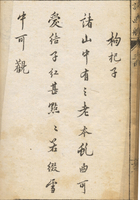 枸杞子
諸山中有之老本亂曲可
愛結子紅甚點點若綴雪
中可觀